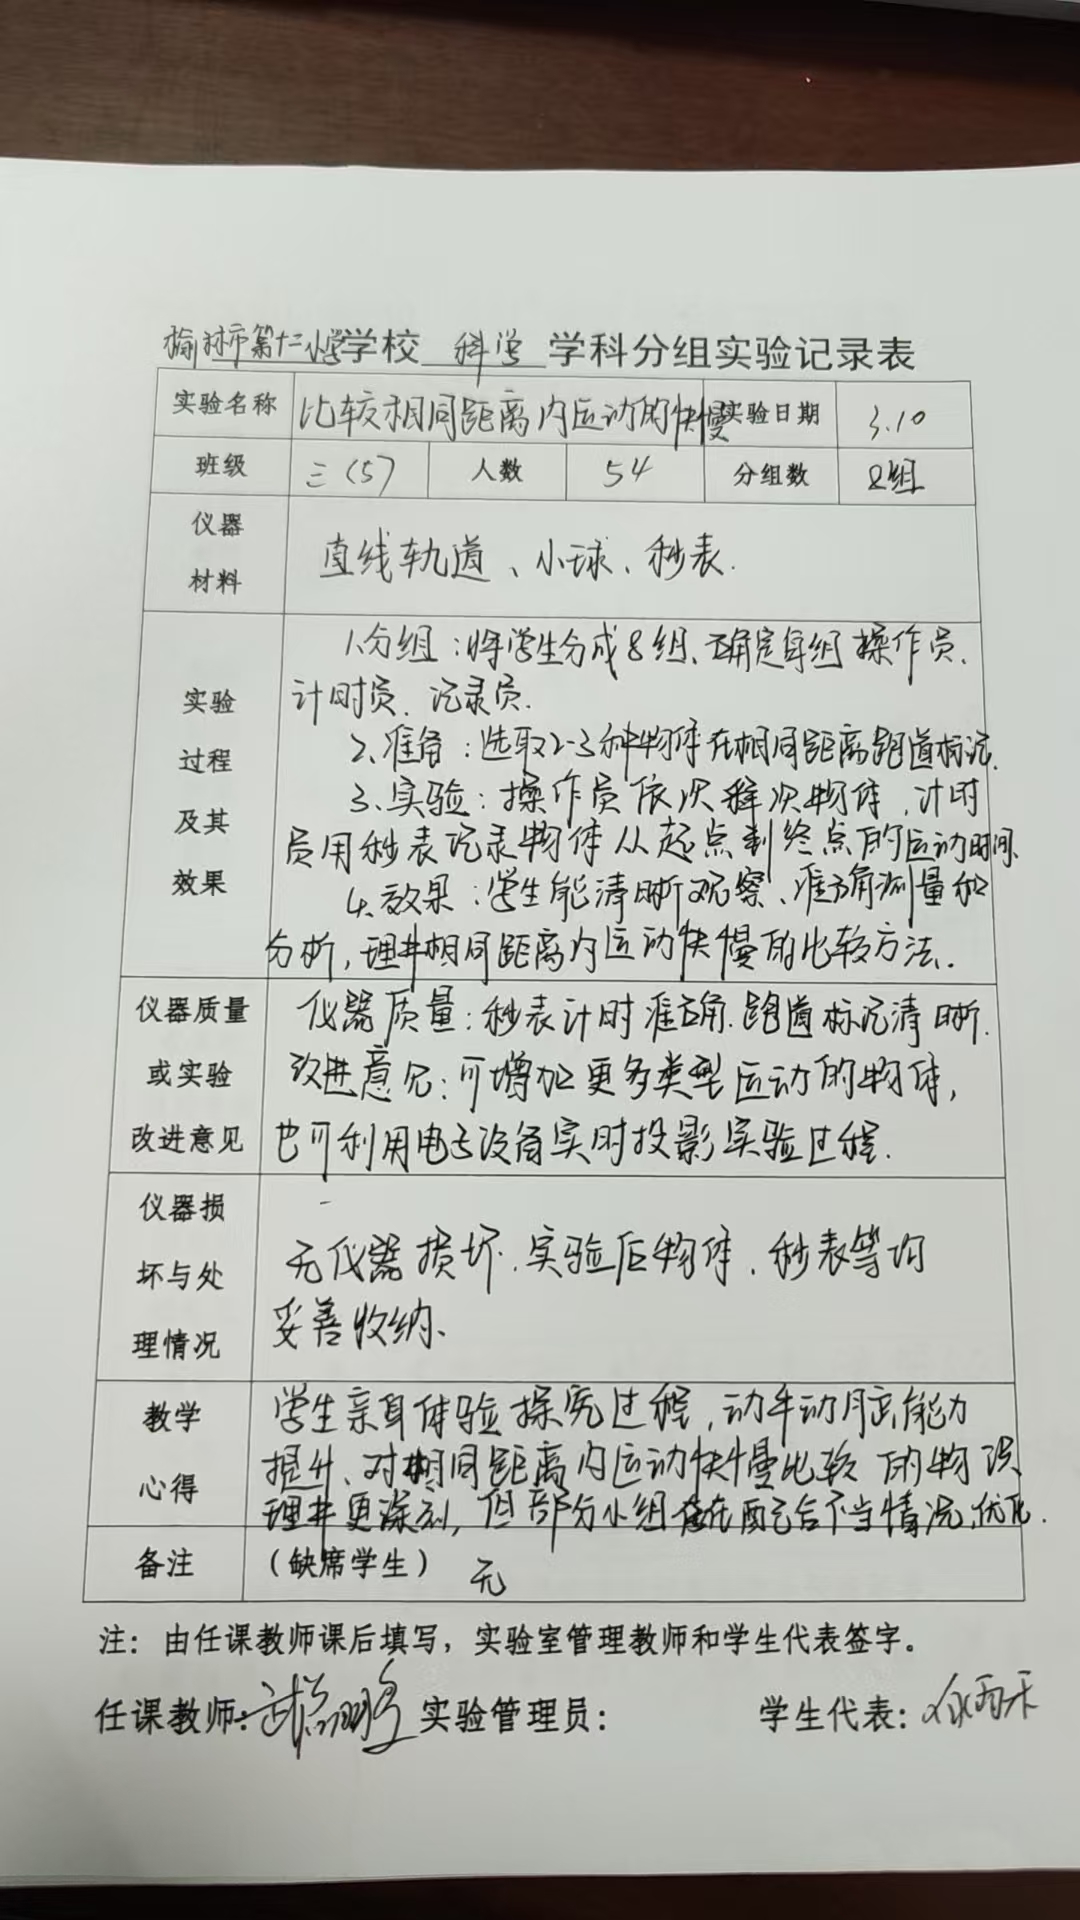 榆林市第十二小学学校 科学 学科分组实验记录表
实验名称 比较相同距离内运动的快慢 实验日期 3.10
班级 三(5) 人数 54 分组数 8组
仪器
材料
直线轨道、小球、秒表.
实验
过程
及其
效果
1.分组：将学生分成8组、确定每组操作员、
计时员、记录员.
2.准备：选取2-3种物体在相同距离跑道标记.
3.实验：操作员依次释放物体,计时
员用秒表记录物体从起点到终点的运动时间、
4.效果：学生能清晰观察、准确测量和
分析,理解相同距离内运动快慢的比较方法.
仪器质量
或实验
改进意见
仪器质量：秒表计时准确.跑道标记清晰.
改进意见：可增加更多类型运动的物体,
也可利用电子设备实时投影实验过程.
仪器损
坏与处
理情况
无仪器损坏.实验后物体、秒表等均
妥善收纳、
教学
心得
学生亲身体验探究过程,动手动脑能力
提升、对相同距离内运动快慢比较的
理解更深刻,但部分小组存在配合不当情况,优化.
备注 (缺席学生) 无
注：由任课教师课后填写，实验室管理教师和学生代表签字。
任课教师： 实验管理员： 学生代表：